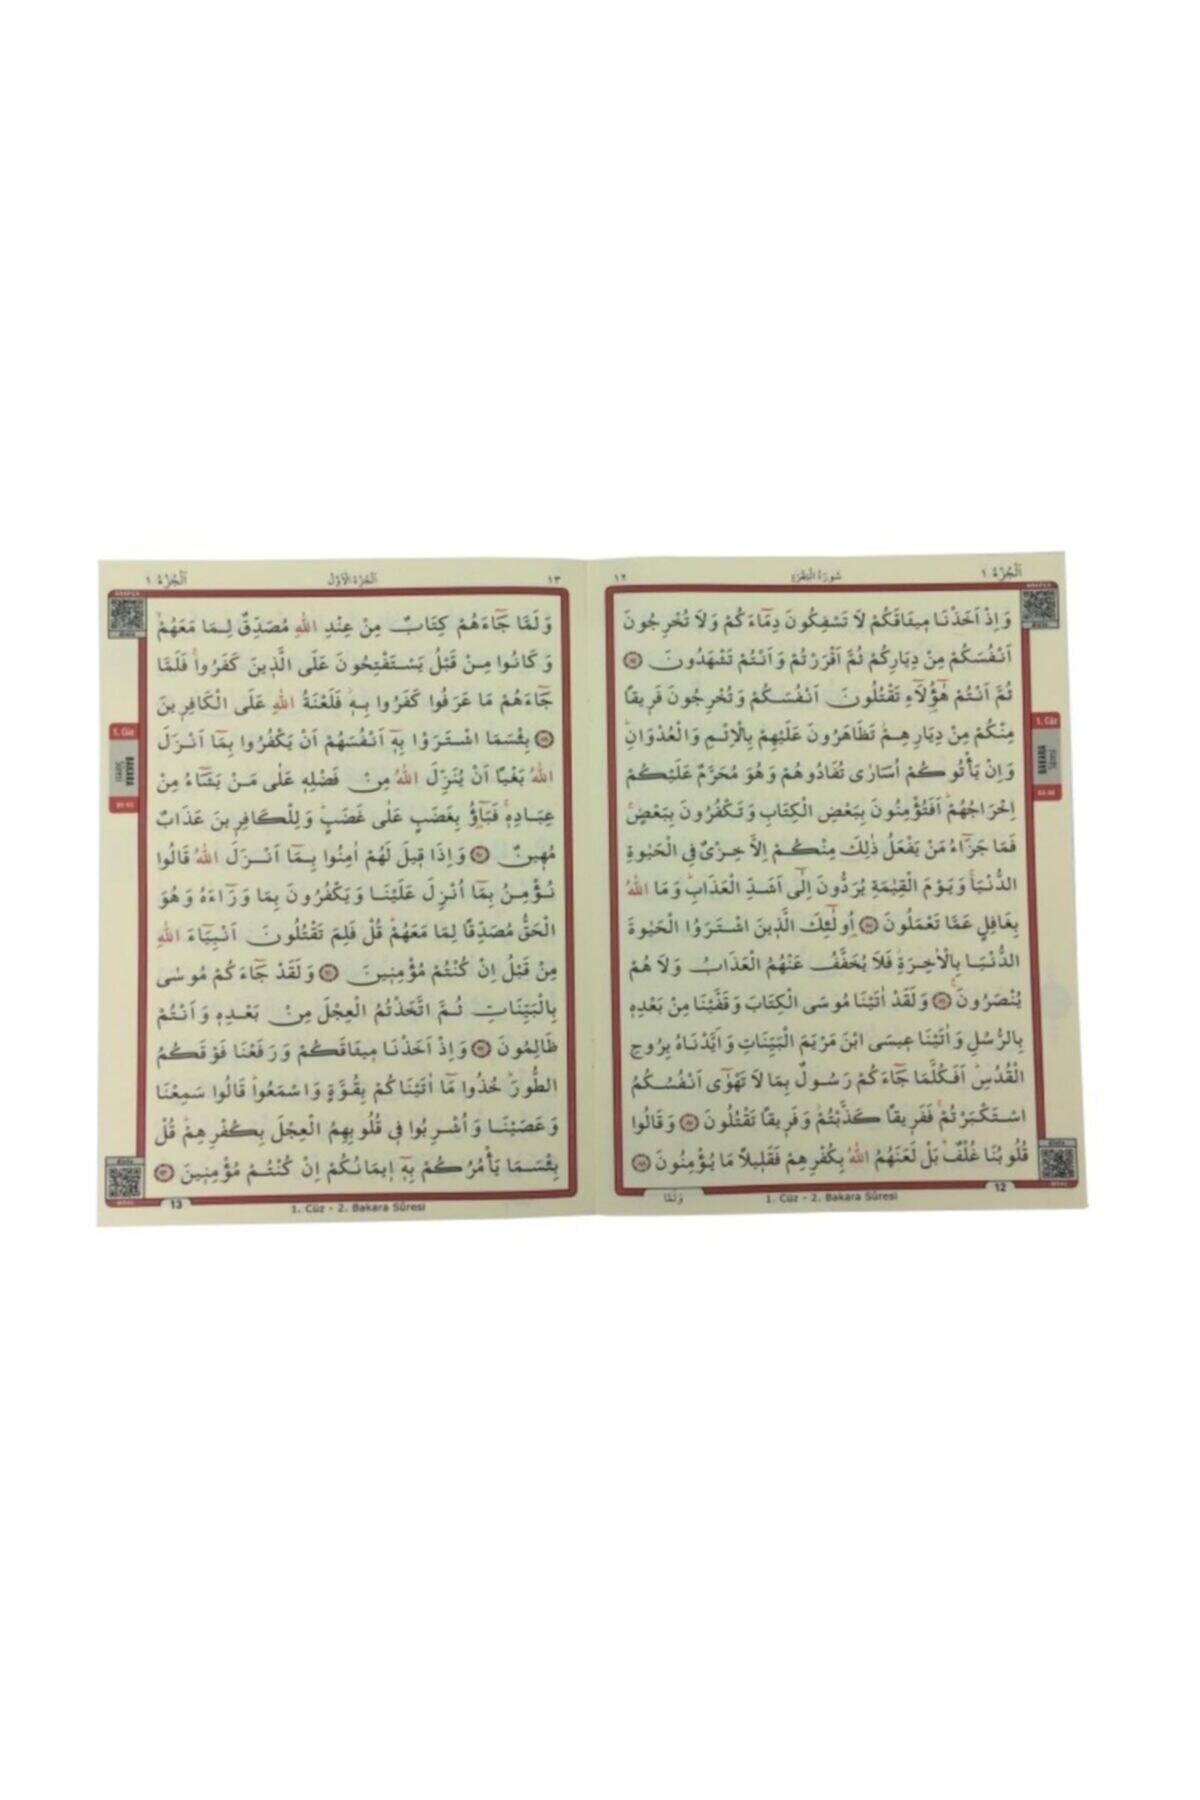 اَلْجُزْءُ ١
سُورَةُ الْبَقَرَةِ
١٢
وَاِذْ اَخَذْنَا مٖيثَاقَكُمْ لَا تَسْفِكُونَ دِمَٓاءَكُمْ وَلَا تُخْرِجُونَ
اَنْفُسَكُمْ مِنْ دِيَارِكُمْ ثُمَّ اَقْرَرْتُمْ وَاَنْتُمْ تَشْهَدُونَ
ثُمَّ اَنْتُمْ هٰٓؤُ۬لَٓاءِ تَقْتُلُونَ اَنْفُسَكُمْ وَتُخْرِجُونَ فَرٖيقًا
مِنْكُمْ مِنْ دِيَارِهِمْۘ تَظَاهَرُونَ عَلَيْهِمْ بِالْاِثْمِ وَالْعُدْوَانِۜ
وَاِنْ يَأْتُوكُمْ اُسَارٰى تُفَادُوهُمْ وَهُوَ مُحَرَّمٌ عَلَيْكُمْ
اِخْرَاجُهُمْۜ اَفَتُؤْمِنُونَ بِبَعْضِ الْكِتَابِ وَتَكْفُرُونَ بِبَعْضٍۚ
فَمَا جَزَٓاءُ مَنْ يَفْعَلُ ذٰلِكَ مِنْكُمْ اِلَّا خِزْىٌ فِي الْحَيٰوةِ
الدُّنْيَاۚ وَيَوْمَ الْقِيٰمَةِ يُرَدُّونَ اِلٰٓى اَشَدِّ الْعَذَابِۜ وَمَا اللّٰهُ
بِغَافِلٍ عَمَّا تَعْمَلُونَ اُو۬لٰٓئِكَ الَّذٖينَ اشْتَرَوُا الْحَيٰوةَ
الدُّنْيَا بِالْاٰخِرَةِۘ فَلَا يُخَفَّفُ عَنْهُمُ الْعَذَابُ وَلَا هُمْ
يُنْصَرُونَ۟ وَلَقَدْ اٰتَيْنَا مُوسَى الْكِتَابَ وَقَفَّيْنَا مِنْ بَعْدِهٖ
بِالرُّسُلِ وَاٰتَيْنَا عٖيسَى ابْنَ مَرْيَمَ الْبَيِّنَاتِ وَاَيَّدْنَاهُ بِرُوحِ
الْقُدُسِۜ اَفَكُلَّمَا جَٓاءَكُمْ رَسُولٌ بِمَا لَا تَهْوٰٓى اَنْفُسُكُمُ
اسْتَكْبَرْتُمْۚ فَفَرٖيقًا كَذَّبْتُمْۘ وَفَرٖيقًا تَقْتُلُونَ وَقَالُوا
قُلُوبُنَا غُلْفٌۜ بَلْ لَعَنَهُمُ اللّٰهُ بِكُفْرِهِمْ فَقَلٖيلًا مَا يُؤْمِنُونَ
12
1. Cüz - 2. Bakara Sûresi
وَلَمَّا
1. Cüz
BAKARA
Sûresi
اَلْجُزْءُ ١
اَلْجُزْءُ الْاَوَّلُ
١٣
وَلَمَّا جَٓاءَهُمْ كِتَابٌ مِنْ عِنْدِ اللّٰهِ مُصَدِّقٌ لِمَا مَعَهُمْۙ
وَكَانُوا مِنْ قَبْلُ يَسْتَفْتِحُونَ عَلَى الَّذٖينَ كَفَرُواۚ فَلَمَّا
جَٓاءَهُمْ مَا عَرَفُوا كَفَرُوا بِهٖۘ فَلَعْنَةُ اللّٰهِ عَلَى الْكَافِرٖينَ
بِئْسَمَا اشْتَرَوْا بِهٖٓ اَنْفُسَهُمْ اَنْ يَكْفُرُوا بِمَٓا اَنْزَلَ
اللّٰهُ بَغْيًا اَنْ يُنَزِّلَ اللّٰهُ مِنْ فَضْلِهٖ عَلٰى مَنْ يَشَٓاءُ مِنْ
عِبَادِهٖۚ فَبَٓاؤُ۫ بِغَضَبٍ عَلٰى غَضَبٍۜ وَلِلْكَافِرٖينَ عَذَابٌ
مُهٖينٌ وَاِذَا قٖيلَ لَهُمْ اٰمِنُوا بِمَٓا اَنْزَلَ اللّٰهُ قَالُوا
نُؤْمِنُ بِمَٓا اُنْزِلَ عَلَيْنَا وَيَكْفُرُونَ بِمَا وَرَٓاءَهُ وَهُوَ
الْحَقُّ مُصَدِّقًا لِمَا مَعَهُمْۜ قُلْ فَلِمَ تَقْتُلُونَ اَنْبِيَٓاءَ اللّٰهِ
مِنْ قَبْلُ اِنْ كُنْتُمْ مُؤْمِنٖينَ وَلَقَدْ جَٓاءَكُمْ مُوسٰى
بِالْبَيِّنَاتِ ثُمَّ اتَّخَذْتُمُ الْعِجْلَ مِنْ بَعْدِهٖ وَاَنْتُمْ
ظَالِمُونَ وَاِذْ اَخَذْنَا مٖيثَاقَكُمْ وَرَفَعْنَا فَوْقَكُمُ
الطُّورَۜ خُذُوا مَٓا اٰتَيْنَاكُمْ بِقُوَّةٍ وَاسْمَعُواۜ قَالُوا سَمِعْنَا
وَعَصَيْنَا وَاُشْرِبُوا فٖي قُلُوبِهِمُ الْعِجْلَ بِكُفْرِهِمْۜ قُلْ
بِئْسَمَا يَأْمُرُكُمْ بِهٖٓ اٖيمَانُكُمْ اِنْ كُنْتُمْ مُؤْمِنٖينَ
13
1. Cüz - 2. Bakara Sûresi
1. Cüz
BAKARA
Sûresi